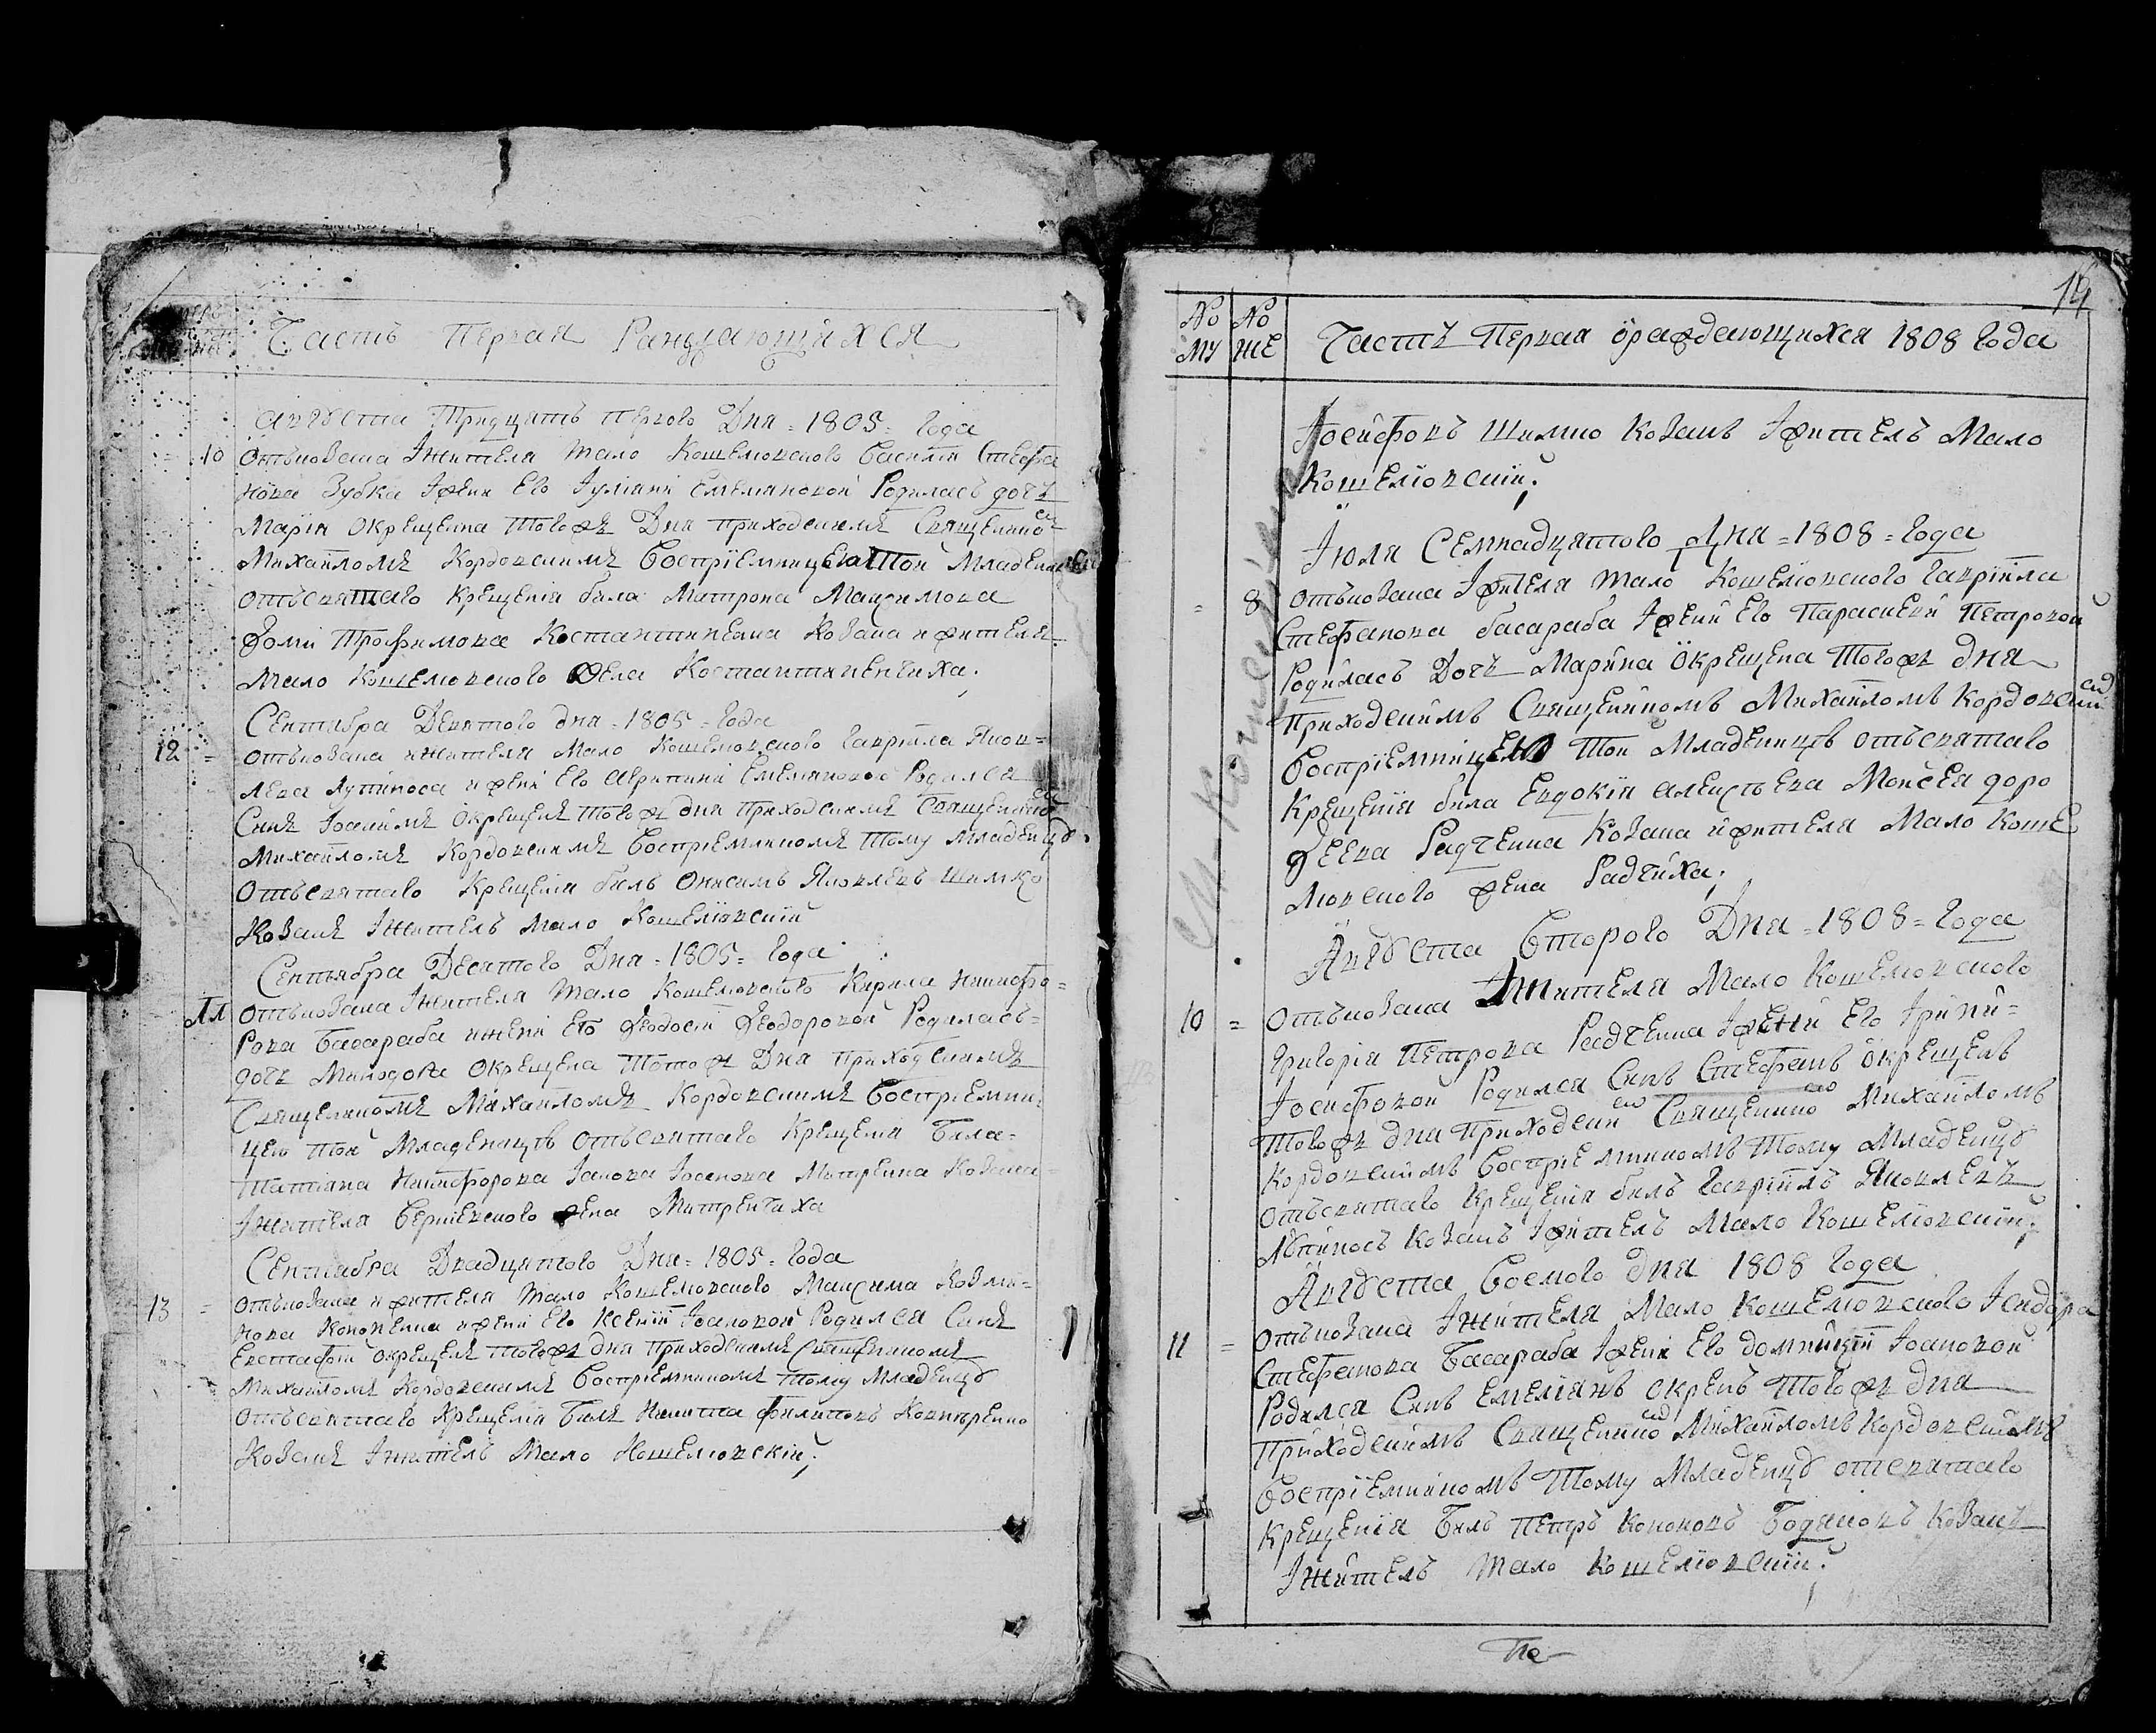 Часть Первая Раждающихся
Августа Тридцять первого Дня = 1805 = Года
10 Отъкозака Жителя Мало Кошелювского Василія Стефа
нова Зубка Іжени Его Іуліаніи Емеліановой Родилась дочъ
Марія Окрещенна Тогожъ Дня приходскимъ Священникомъ
Михаиломъ Кордовскимъ Воспріемницею Той Младеницѣ
Отъсвятаго Крещенія била Матрона Максимова
Фоми Трофимова Костантиненка Козака ижителя
Мало Кошелювского Жена Костантиненчиха.
Сентабра Девятого дня = 1805 = Года
12 = Отъкозака ижителя Мало Кошелювского Гавріила Яков=
лева Лупиноса ижени Его Агрипини Емеліановой Родился
Синъ Іоакимъ Окрещенъ Тогожъ дня приходскимъ Священникомъ
Михаиломъ Кордовскимъ Воспріемникомъ Тому Младенцу
Отъсвятаго Крещенія билъ Онисимъ Яковлевъ Шимко
Козакъ Іжитель Мало Кошелювскій
Сентября Десятого Дня = 1805 = Года
11 Отъкозака Іжителя Мало Кошелювского Кирила Никифо=
рова Басараба ижени Его Феодосіи Феодоровой Родилась=
дочъ Минодора Окрещена Тогожъ Дня приходскимъ
Священникомъ Михаиломъ Кордовскимъ Воспріемни=
цею той Младеницѣ Отъсвятаго Крещенія Била=
Татіана Никифорова Іакова Іосипова Митренка Козака
Іжителя Вертіевского жена Митренчиха
Сентабра Двадцятого Дня = 1805 = Года
13 = Отъкозака ижителя Мало Кошелювского Максима Козми=
чова Кононенка ижени Его Ксеніи Іоановой Родился Синъ
Евстафій Окрещенъ Тогожъ дня приходскимъ Священникомъ
Михаиломъ Кордовскимъ Воспріемникомъ Тому Младенцу
Отъсвятаго Крещенія Билъ Никита Филиповъ
Козакъ Іжитель Мало Кошелювскій;
14
No МУ No ЖЕ Часть Первая Ораждающихся 1808 Года
Іосифовъ Шимко Козакъ Іжитель Мало
Кошелювскій;
Іюля Семнадцятого Дня = 1808 = Года
= 8 Отъкозака Іжителя Мало Кошелювского Гавріила
Стефанова басараба Іжени Его Параскеви Петровой
Родилась Дочъ Марина Окрещена Тогожъ дня
приходскимъ Священникомъ Михаиломъ Кордовскимъ
Воспріемницею Той Младеницѣ отъсвятаго
Крещенія била Евдокія Моисея доро
феева Радченка Козака ижителя Мало Коше
лювского жена Радчиха;
Августа Второго Дня = 1808 = Года
10 = Отъкозака Іжителя Мало Кошелювского
Григорія Петрова Радченка Іжени Его Ірини=
Іосифовой Родился Синъ Стефанъ Окрещенъ
Тогожъ дня Приходским Священником Михаиломъ
Кордовскимъ Воспріемникомъ Тому Младенцу
Отъсвятаго Крещенія билъ Гавріилъ Яковлевъ
Лупиносъ Козакъ Іжитель Мало Кошелювскій;
Августа Восмого дня 1808 Года
11 = Отъкозака Іжителя Мало Кошелювского Ісидора
Стефанова Басараба Іжени Его домникіи Іоановой
Родился Синъ Емеліанъ Окренъ Тогожъ дня
Приходскимъ Священником Михаиломъ Кордовскимъ
Воспріемникомъ Тому Младенцу отсвятаго
Крещенія Билъ Петръ Кононовъ Бодяковъ Козакъ
Іжитель Мало Кошелювскій.